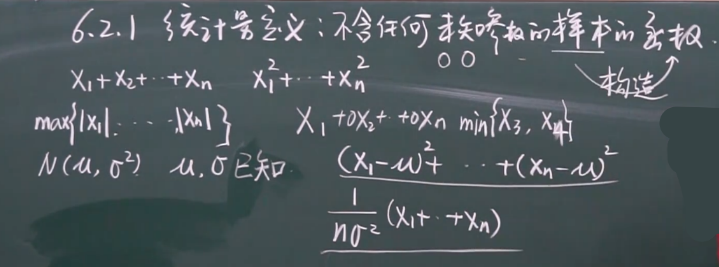 6.2.1 统计量定义:不含任何未知参数的样本的函数.
构造
X₁+X₂+⋯+Xₙ X₁²+⋯+Xₙ²
max{|X₁|,⋯⋯,|Xₙ|} X₁+0X₂+⋯+0Xₙ min{X₃, X₄}
N(μ, σ²) μ,σ已知. (X₁-μ)²+⋯+(Xₙ-μ)²
1/nσ² (X₁+⋯+Xₙ)